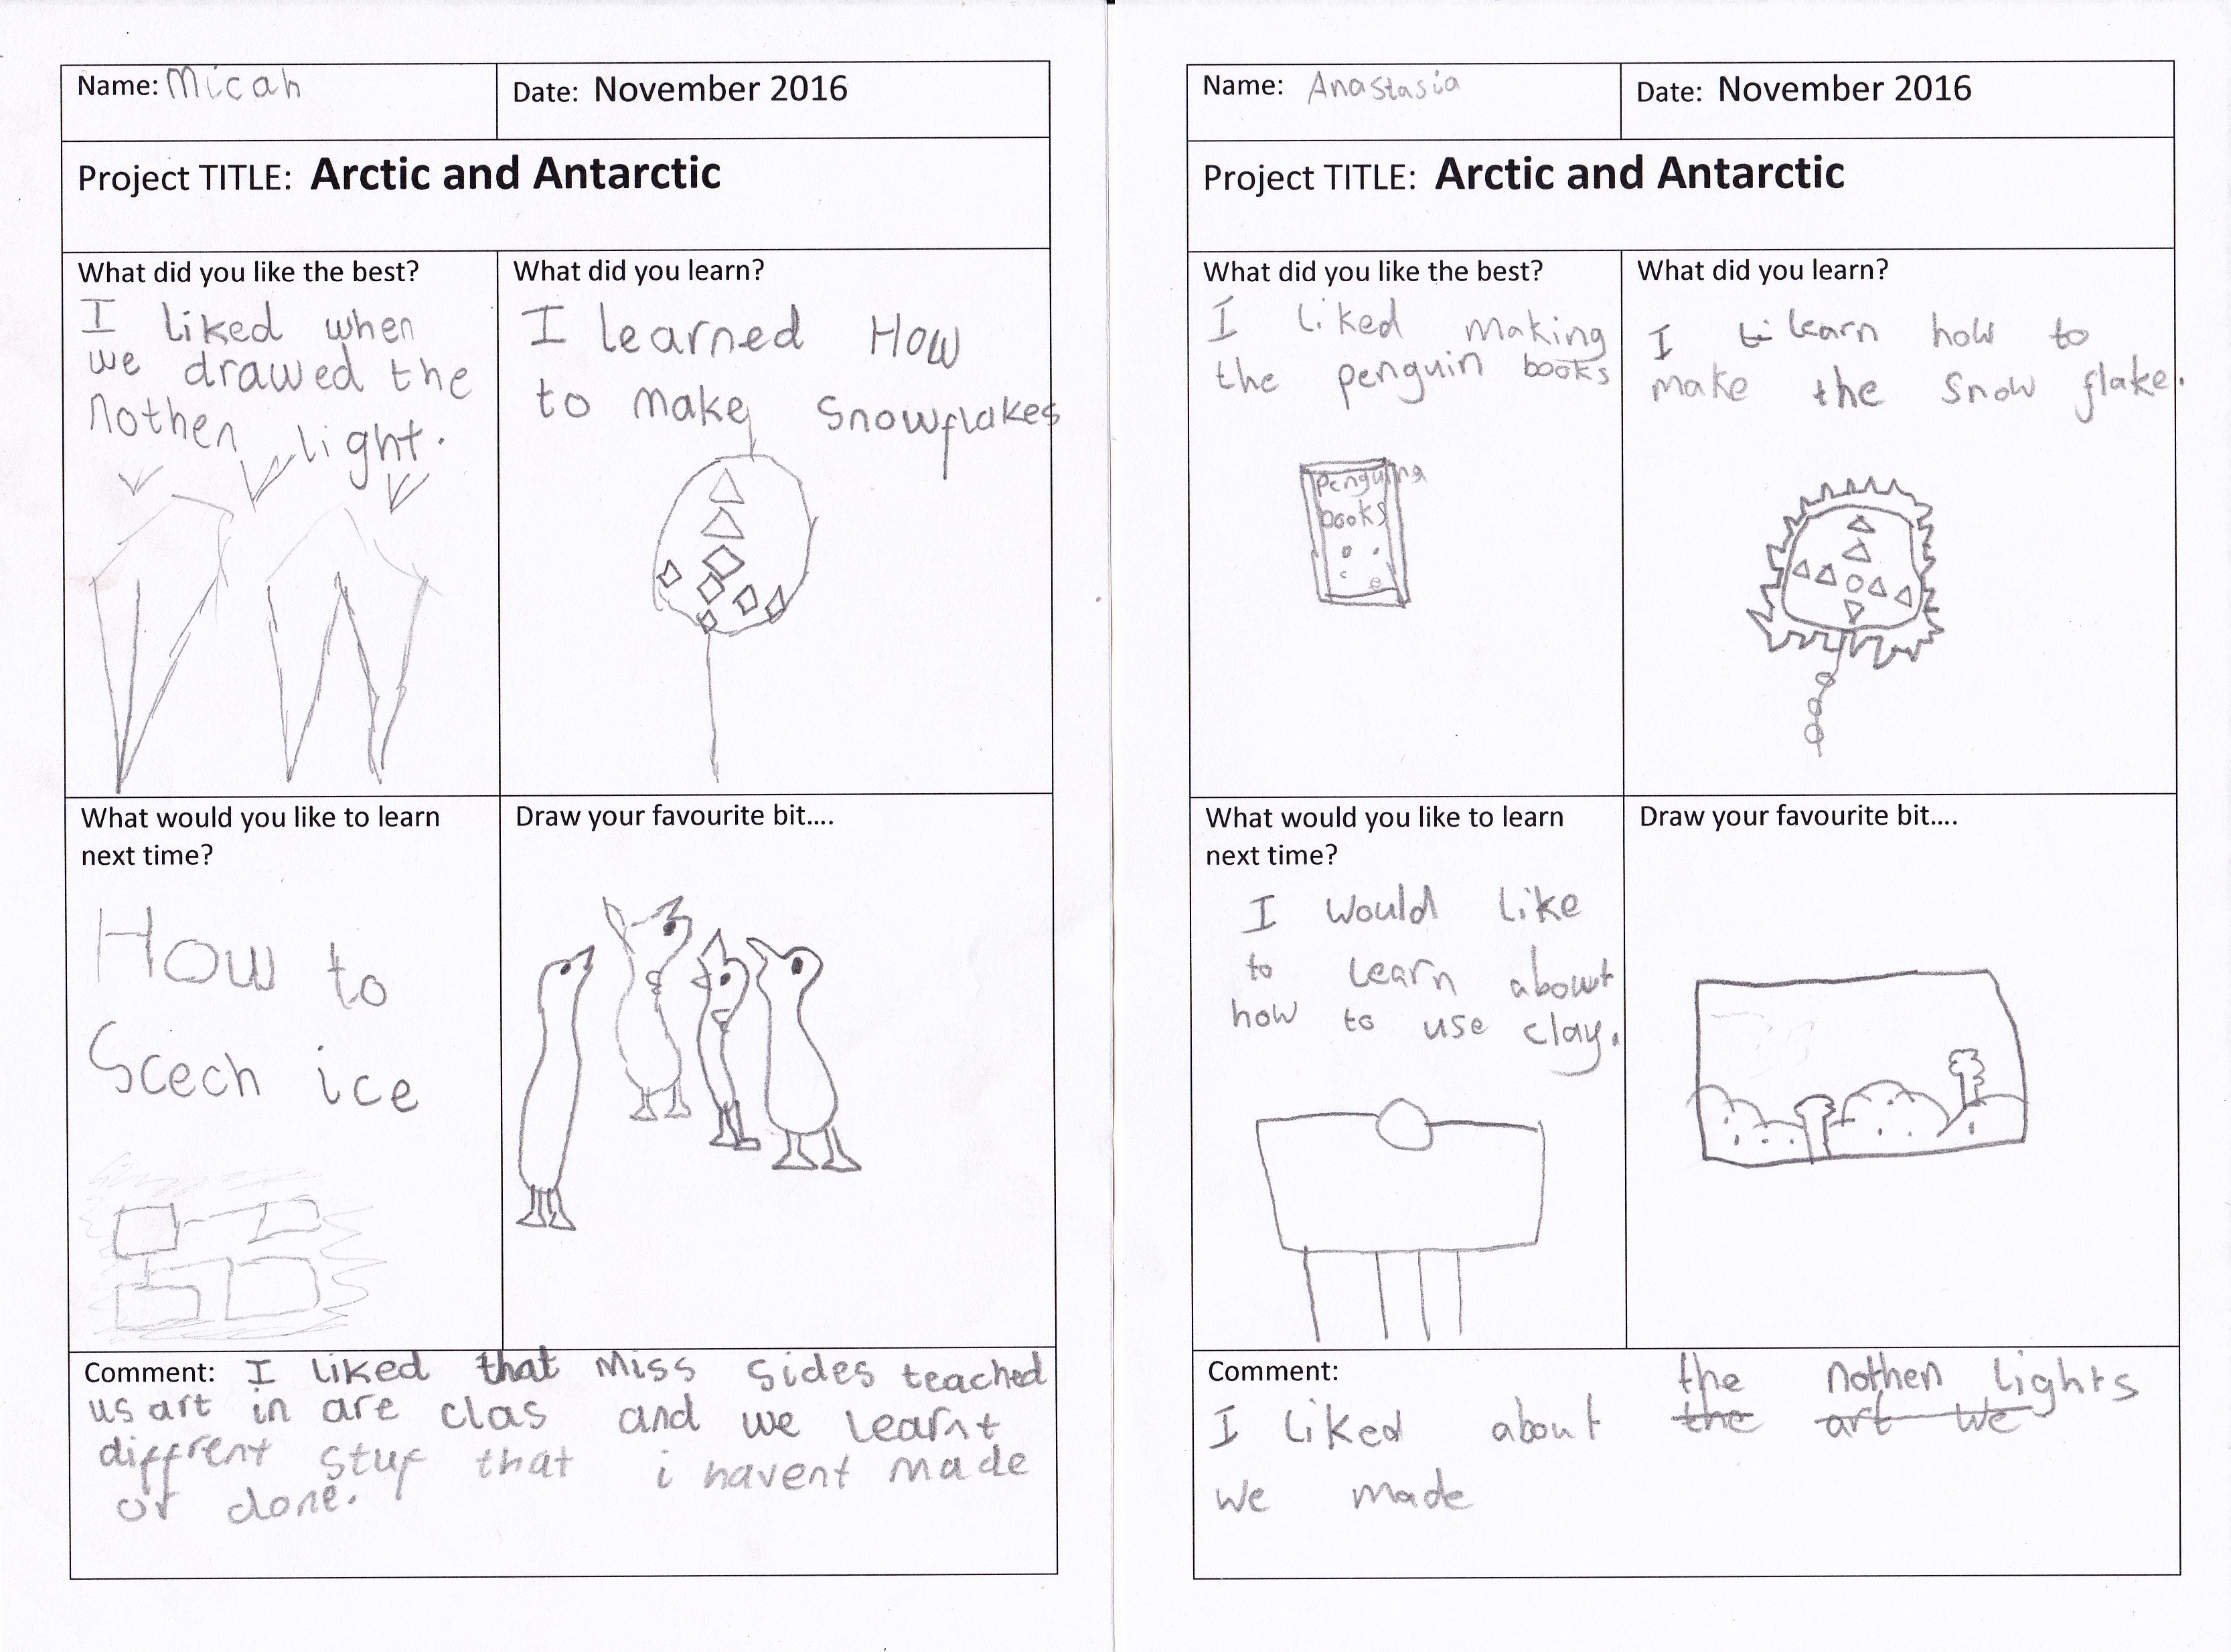 Name: Micah
Date: November 2016
Project TITLE: Arctic and Antarctic
What did you like the best?
I liked when
we drawed the
nothen light.
What did you learn?
I learned How
to make snowflakes
What would you like to learn
next time?
How to
Scech ice
Draw your favourite bit....
Comment: I liked that Miss Sides teached
us art in are clas and we learnt
diffrent stuf that i havent made
or done.
Name: Anastasia
Date: November 2016
Project TITLE: Arctic and Antarctic
What did you like the best?
I liked making
the penguin books
penguins
books
What did you learn?
I learn how to
make the snow flake.
What would you like to learn
next time?
I would like
to learn abowt
how to use clay.
Draw your favourite bit....
Comment:
the nothen lights
I liked about the art we
we made